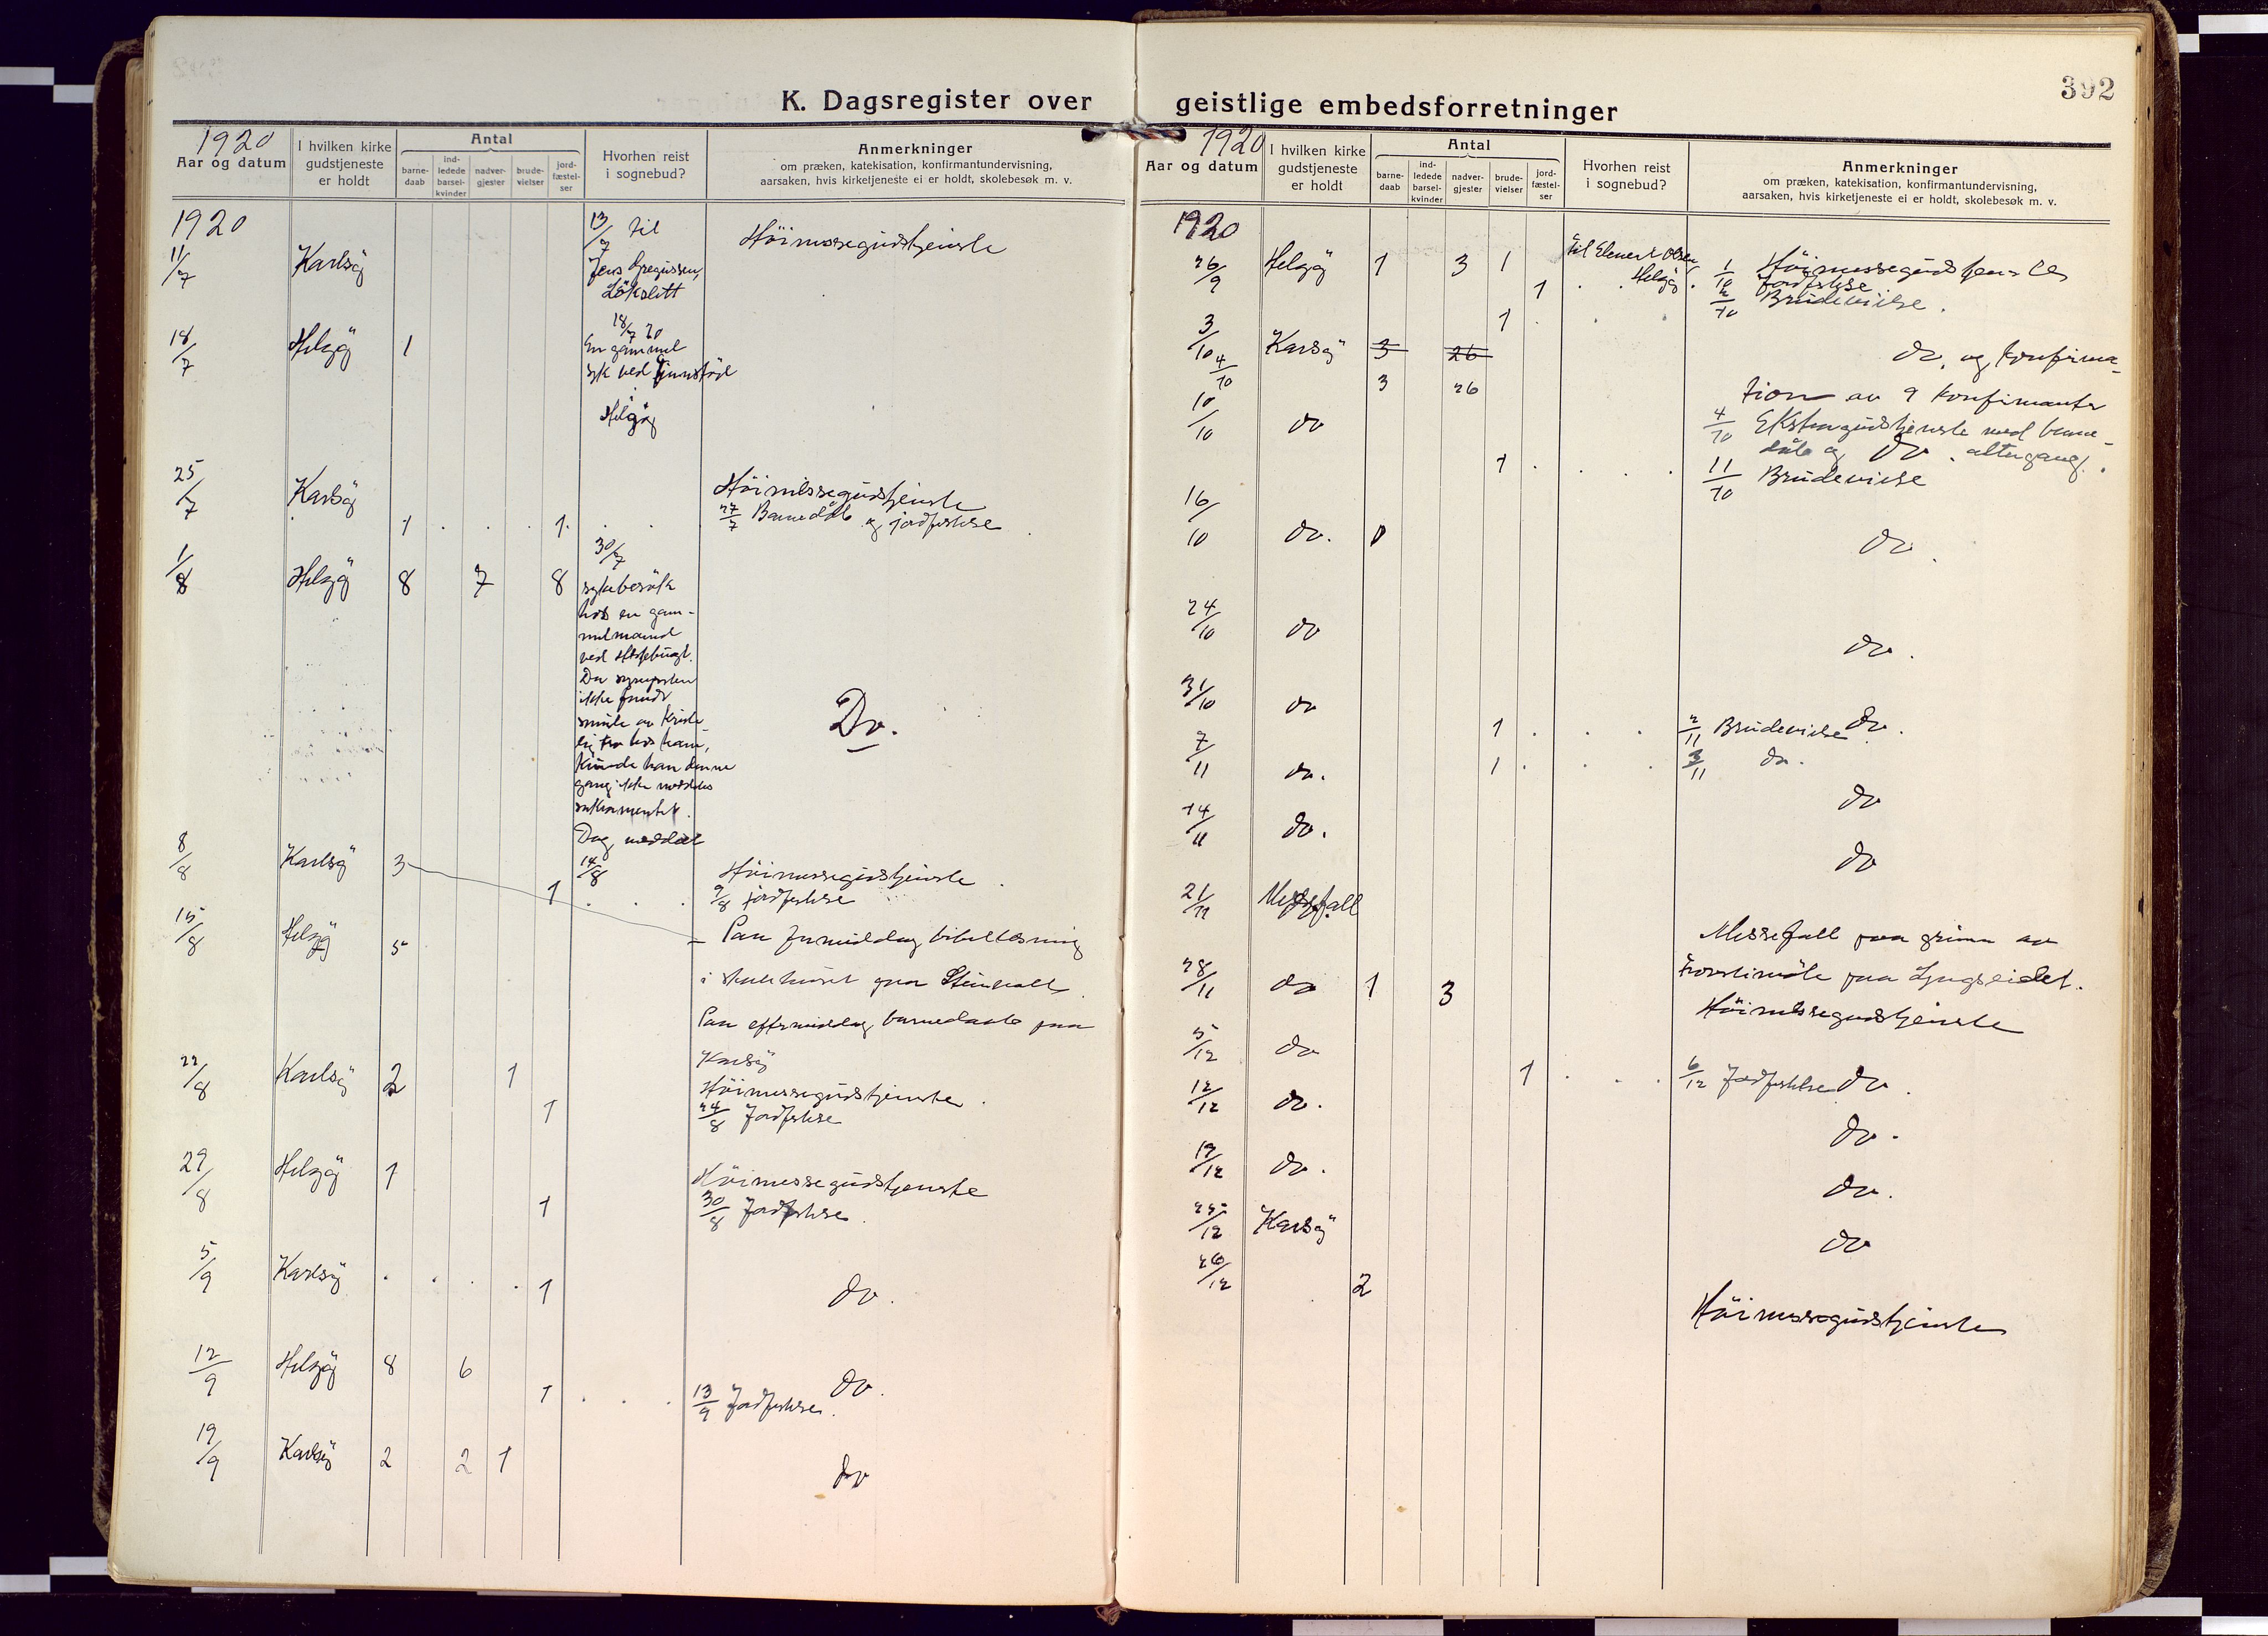 392
K. Dagsregister over geistlige embedsforretninger
1920
Aar og datum
I hvilken kirke
gudstjeneste
er holdt
Antal
barne-
daab
ind-
ledede
barsel-
kvinder
nadver-
gjester
brude-
vielser
jord-
fæstel-
ser
Hvorhen reist
i sognebud?
Anmerkninger
om præken, katekisation, konfirmantundervisning,
aarsaken, hvis kirketjeneste ei er holdt, skolebesøk m. v.
1920
13/7 til
11/7 Karlsöy Jens Höimessegudstjeneste
18/7 20
18/7 Helgöy 1 En gammel
syk ved
Helgöy
25/7 Karlsöy Höimessegudstjeneste
1 . . . 1 . . . 27/7 Barnedåb og jordfestelse
30/7
1/8 Helgöy 8 7 8 sykebesök
hos en gam-
mel mand
ved
Da
ikke fandt
smule av kriste-
lig tro hos ham,
kunde han denne
gang ikke meddeles
sakramentet.
Do.
Dog meddelt
14/8
8/8 Karlsöy 3 Höimessegudstjeneste.
1 . . . 9/8 jordfestelse
15/8 Helgöy 5 Paa formiddag bibellæsning
i skolehuset paa
Paa eftermiddag barnedaab paa
Karlsöy
22/8 Karlsöy 2 1 Höimessegudstjeneste.
1 24/8 Jordfestelse
29/8 Helgöy 1 Höimessegudstjeneste
1 30/8 Jordfestelse.
5/9 Karlsöy . . . . 1 do.
12/9 Helgöy 8 6 do.
1 . . . 13/9 Jordfestelse.
19/9 Karlsöy 2 2 1 do
1920
Aar og datum
I hvilken kirke
gudstjeneste
er holdt
Antal
barne-
daab
ind-
ledede
barsel-
kvinder
nadver-
gjester
brude-
vielser
jord-
fæstel-
ser
Hvorhen reist
i sognebud?
Anmerkninger
om præken, katekisation, konfirmantundervisning,
aarsaken, hvis kirketjeneste ei er holdt, skolebesøk m. v.
1920
26/9 Helgöy 1 3 1 til Olsen, Höimessegudstjeneste
1 . . Helgöy. 1/10 Jordfestelse
1 . . . 2/10 Brudevielse.
3/10 Karlsöy 3 26 do. og konfirma-
4/10 3 26 tion av 9 konfirmanter
10/10 do 4/10 Ekstragudstjeneste med barne-
dåb og do. altergang.
1 . . . 11/10 Brudevielse
16/10 do. do.
24/10 do do.
31/10 do do.
1 . . . 2/11 Brudevielse
7/11 do. 1 . . . 3/11 do.
do
14/11 do. do
21/11 Messefall Messefall paa grunn av
paa Lyngseidet.
28/11 do 1 3 Höimessegudstjeneste
5/12 do do.
1 . . . 6/12 Jordfestelse
12/12 do. do.
19/12 do. do.
25/12 Karlsöy do
26/12 2 Höimessegudstjeneste